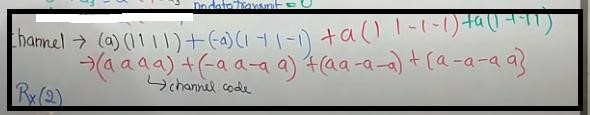 no data transmit = 0
channel → (a)(1 1 1 1) + (-a)(1 -1 1 -1) + a(1 1 -1 -1) + a(1 -1 -1 1)
→ (a a a a) + (-a a -a a) + (a a -a -a) + (a -a -a a)
↳ channel code
Rx(2)